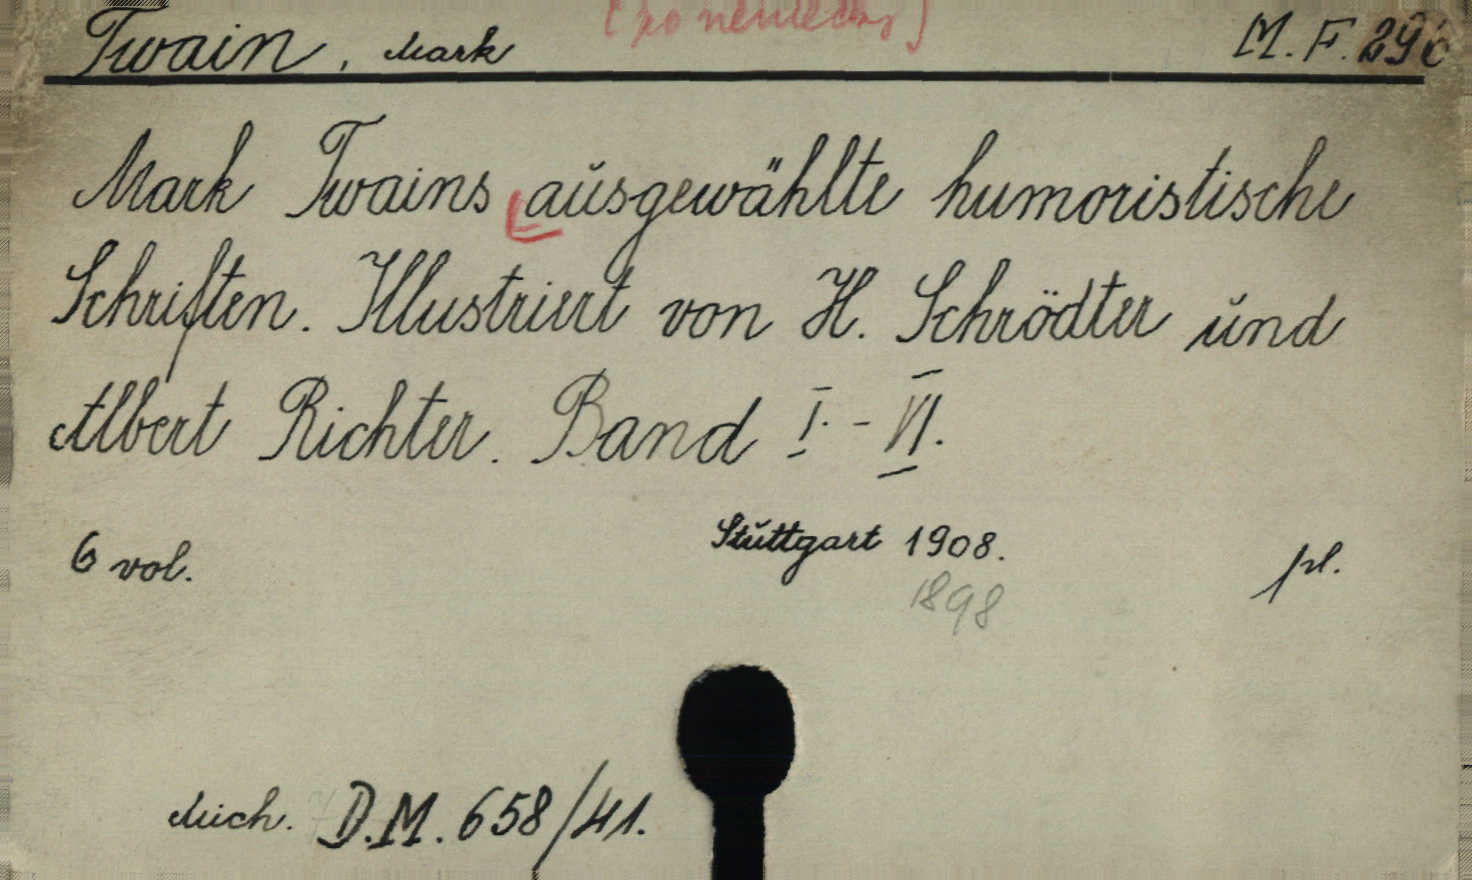 (po nemecky)
Twain, Mark M. F. 296
Mark Twains ausgewählte humoristische
Schriften. Illustriert von H. Schrödter und
Albert Richter. Band I. - VI.
6 vol. Stuttgart 1908. pl.
1898
Mich. D.M. 658/41.